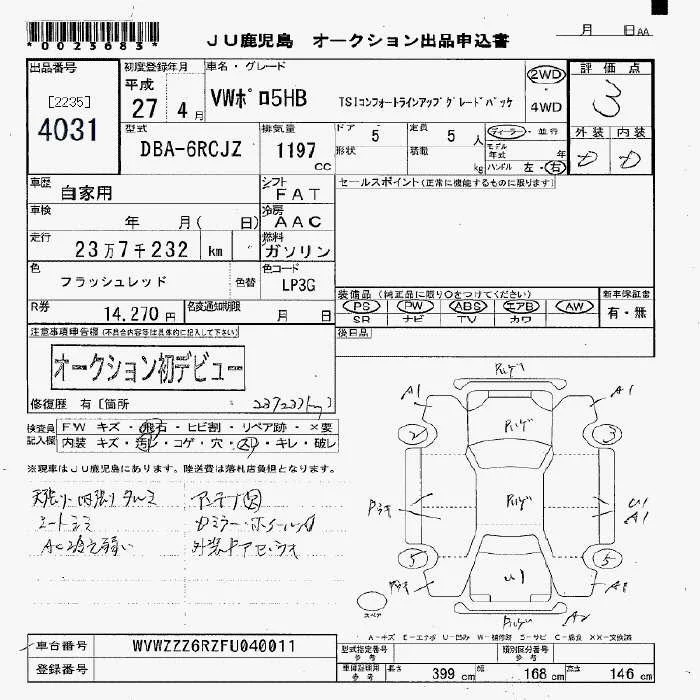 *0023683*
JU鹿児島 オークション出品申込書
月 日AA
出品番号 初度登録年月 車名・グレード 評価点
[2235]
4031
平成
27 4月
VWポロ5HB TSIコンフォートラインアップグレードパッケ
2WD・4WD
3
型式 排気量 ドア 定員
DBA-6RCJZ 1197 cc
5 5人
形状 積載 kg
ディーラー・並行
モデル年式 年
ハンドル 左・右
外装 内装
D D
車歴 自家用 シフト FAT
セールスポイント(正常に機能するものに限ります)
車検 年 月( 日) 冷房 AAC
走行 23万7千232 km 燃料 ガソリン
色 フラッシュレッド 色替 色コード LP3G
装備品(純正品に限り○をつけてください) 新車保証書
PS PW ABS エアB AW 有・無
SR ナビ TV カワ
R券 14,270円 名変通知期限 月 日
後日品
注意事項申告欄(不具合内容等は具体的に記入して下さい)
オークション初デビュー
修復歴 有[箇所
検査員記入欄
FW キズ・飛石・ヒビ割・リペア跡・×要
内装 キズ・汚レ・コゲ・穴・スレ・キレ・破レ
※現車はJU鹿児島にあります。陸送費は落札店負担となります。
天張り・内張りタルミ
シートシミ
AC冷え弱い
A1 A1
2 3
U1
A1
5 5
U1
A2
スペア
A-キズ E-エクボ U-凹み W-補修跡 S-サビ C-腐食 XX-交換済
車台番号 WVWZZZ6RZFU040011
型式指定番号 参考 類別区分番号 参考
登録番号
車検証明用 参考 長さ 399 cm 幅 168 cm 高さ 146 cm